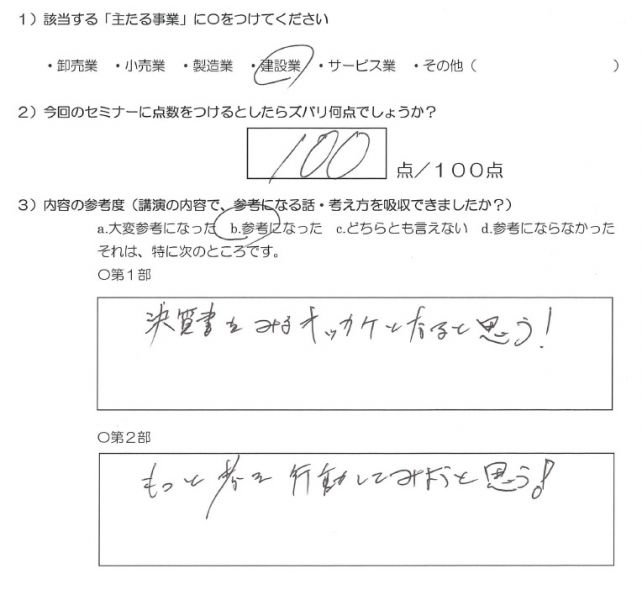 1）該当する「主たる事業」に〇をつけてください
・卸売業　・小売業　・製造業　・建設業　・サービス業　・その他（　　　　　　　　　）
2）今回のセミナーに点数をつけるとしたらズバリ何点でしょうか？
100 点／１００点
3）内容の参考度（講演の内容で、参考になる話・考え方を吸収できましたか？）
a.大変参考になった　b.参考になった　c.どちらとも言えない　d.参考にならなかった
それは、特に次のところです。
〇第１部
決算書をみるキッカケと なると思う！
〇第２部
もっと考え 行動してみようと思う！